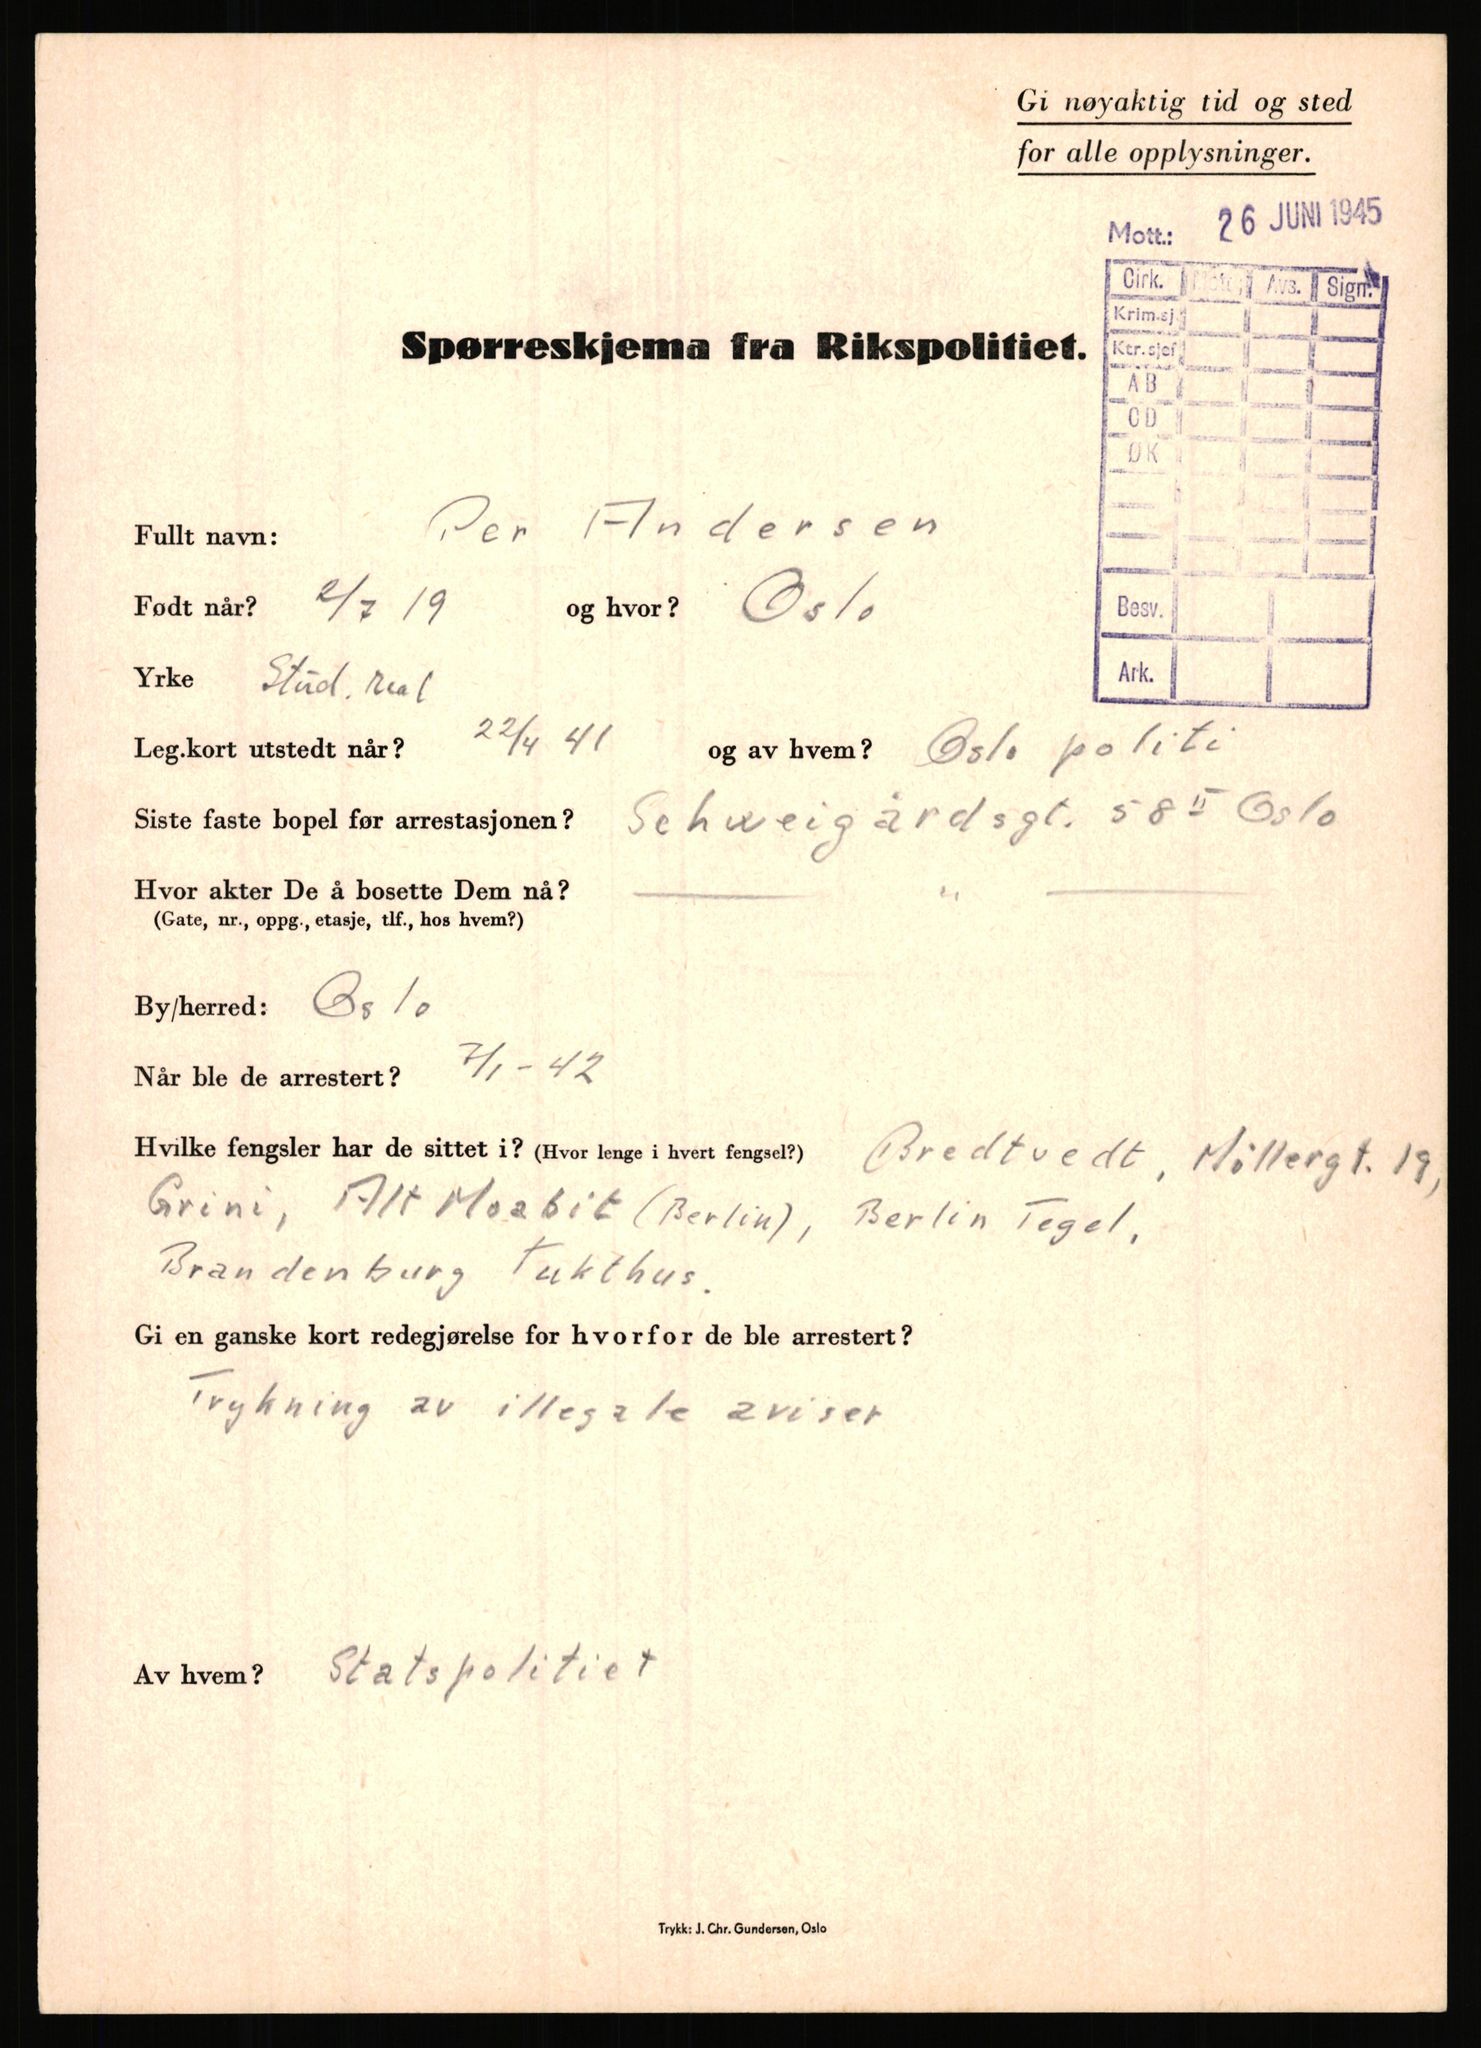 Gi nøyaktig tid og sted
for alle opplysninger.
Mott.: 26 JUNI 1945
Cirk. Avs. Sign.
Krim.sj.
Ktr.sjef
AB
CD
ØK
Besv.
Ark.
Spørreskjema fra Rikspolitiet.
Fullt navn: Per Andersen
Født når? 2/7 19 og hvor? Oslo
Yrke Stud. real
Leg.kort utstedt når? 22/4 41 og av hvem? Oslo politi
Siste faste bopel før arrestasjonen? Schweigårdsgt. 58 II Oslo
Hvor akter De å bosette Dem nå? — " —
(Gate, nr., oppg., etasje, tlf., hos hvem?)
By/herred: Oslo
Når ble de arrestert? 7/1 - 42
Hvilke fengsler har de sittet i? (Hvor lenge i hvert fengsel?) Bredtvedt, Møllergt. 19,
Grini, Alt Moabit (Berlin), Berlin Tegel,
Brandenburg Tukthus.
Gi en ganske kort redegjørelse for hvorfor de ble arrestert?
Trykning av illegale aviser
Av hvem? Statspolitiet
Trykk: J. Chr. Gundersen, Oslo